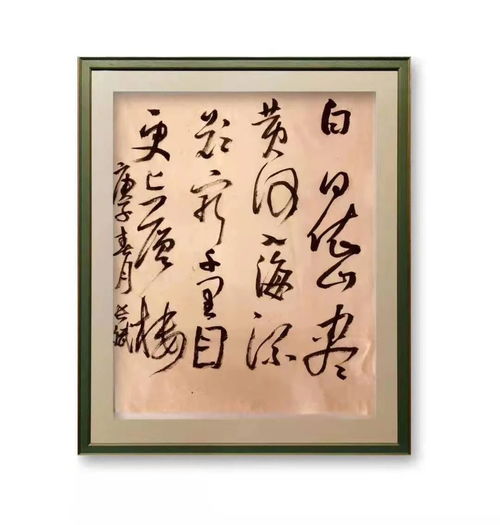 白日依山尽
黄河入海流
欲穷千里目
更上一层楼
庚子春月